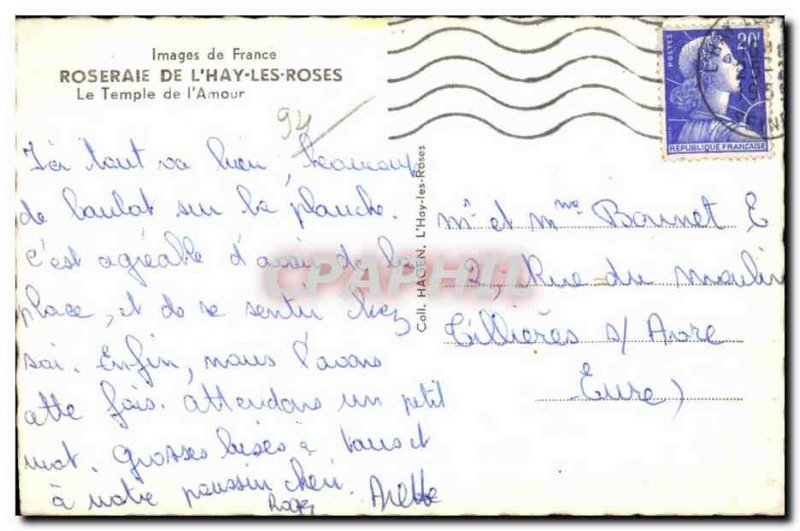 Images de France
ROSERAIE DE L'HAY-LES-ROSES
Le Temple de l'Amour
94
Ici tout va bien, beaucoup
de boulot sur la planche.
C'est agréable d'avoir de la
place, et de se sentir chez
soi. Enfin, nous l'avons
cette fois. Attendons un petit
mot. Grosses bises à vous et
à notre poussin chéri.
Roger Arlette
Coll. HAGEN, L'Hay-les-Roses
POSTES
20f
REPUBLIQUE FRANÇAISE
Mr et Mme Bonnet E
2, Rue du moulin
Tillières s/ Avre
Eure)
CPAPHIL